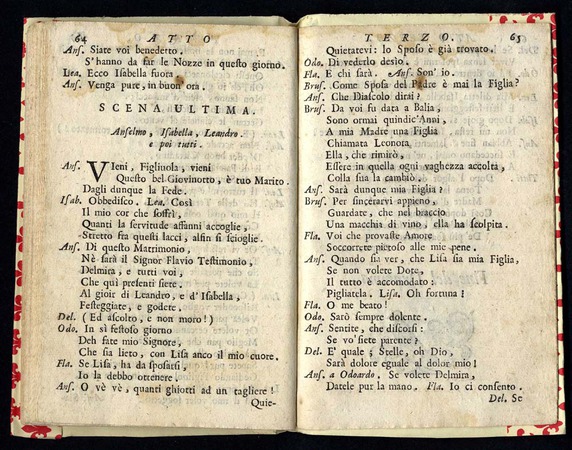 64 ATTO
Ans. Siate voi benedetto.
S'hanno da far le Nozze in questo giorno.
Lea. Ecco Isabella fuora.
Ans. Venga pure, in buon ora.
SCENA ULTIMA.
Anselmo, Isabella, Leandro,
e poi tutti.
Ans. VIeni, Figliuola, vieni
Questo bel Giovinotto, è tuo Marito.
Dagli dunque la Fede.
Isab. Obbedisco. Lea. Così
Il mio cor che soffrì,
Quanti la servitude affanni accoglie,
Stretto fra questi lacci, alfin si scioglie.
Ans. Di questo Matrimonio
Nè sarà il Signor Flavio Testimonio,
Delmira, e tutti voi,
Che quì presenti siete.
Al gioir di Leandro, e d'Isabella,
Festeggiate, e godete.
Del. (Ed ascolto, e non moro!)
Odo. In sì festoso giorno
Deh fate mio Signore,
Che sia lieto, con Lisa anco il mio cuore.
Fla. Se Lisa, ha da sposarsi,
Io la debbo ottenere.
Ans. O vè vè, quanti ghiotti ad un tagliere!
Quie-
TERZO. 65
Quietatevi: lo Sposo è già trovato.
Odo. Di vederlo desìo.
Fla. E chi sarà. Ans. Son' io.
Brus. Come Sposa del Padre è mai la Figlia?
Ans. Che Diascolo dirai?
Brus. Da voi fu data a Balia,
Sono ormai quindic'Anni,
A mia Madre una Figlia
Chiamata Leonora,
Ella, che rimirò,
Essere in quella ogni vaghezza accolta,
Colla sua la cambiò.
Ans. Sarà dunque mia Figlia?
Brus. Per sincerarvi appieno,
Guardate, che nel braccio
Una macchia di vino, ella ha scolpita.
Fla. Voi che provaste Amore
Soccorrete pietoso alle mie pene.
Ans. Quando sia ver, che Lisa sia mia Figlia,
Se non volete Dote,
Il tutto è accomodato:
Pigliatela. Lisa. Oh fortuna!
Fla. O me beato!
Odo. Sarò sempre dolente.
Ans. Sentite, che discorsi:
Se vo' siete parente?
Del. E' quale; Stelle, oh Dio,
Sarà dolore eguale al dolor mio!
Ans. a Odoardo. Se volete Delmira,
Datele pur la mano. Fla. Io ci consento.
Del. Se